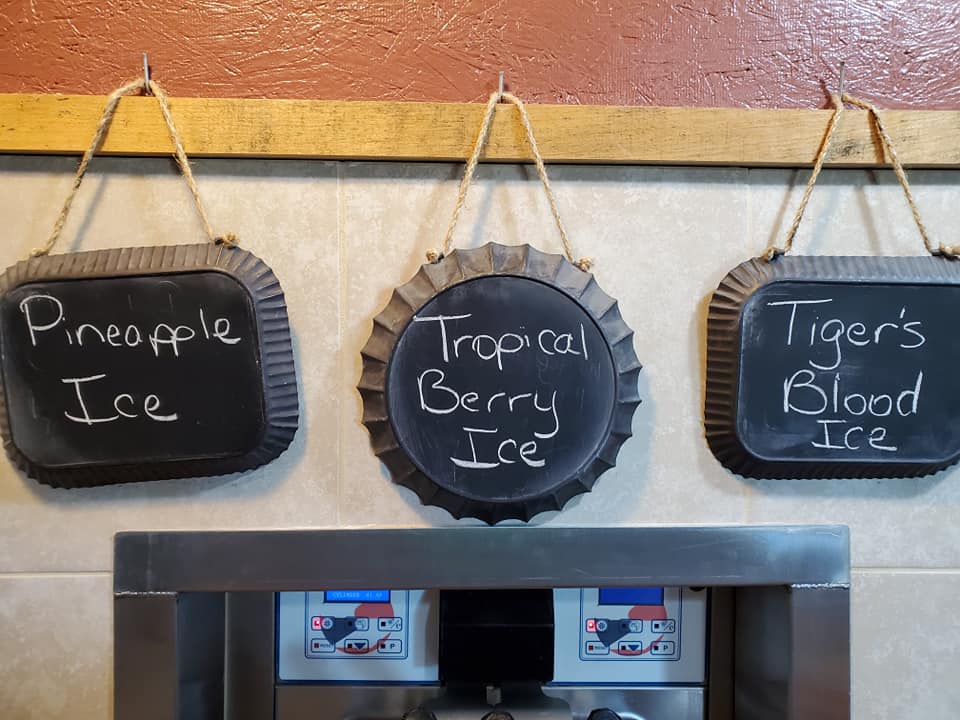 Pineapple
Ice
Tropical
Berry
Ice
Tiger's
Blood
Ice
MENU
P
MENU
P